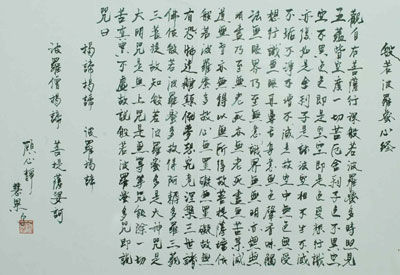 般若波羅蜜心經
觀自在菩薩行深般若波羅蜜多時照見
五蘊皆空度一切苦厄舍利子色不異空
空不異色色即是空空即是色受想行識
亦復如是舍利子是諸法空相不生不滅
不垢不淨不增不減是故空中無色無受
想行識無眼耳鼻舌身意無色聲香味觸
法無眼界乃至無意識界無無明亦無無
明盡乃至無老死亦無老死盡無苦集滅
道無智亦無得以無所得故菩提薩埵依
般若波羅蜜多故心無罣礙無罣礙故無
有恐怖遠離顛倒夢想究竟涅槃三世諸
佛依般若波羅蜜多故得阿耨多羅三藐
三菩提故知般若波羅蜜多是大神咒是
大明咒是無上咒是無等等咒能除一切
苦真實不虛故說般若波羅蜜多咒即說
咒曰
揭諦揭諦 波羅揭諦
波羅僧揭諦 菩提薩婆訶